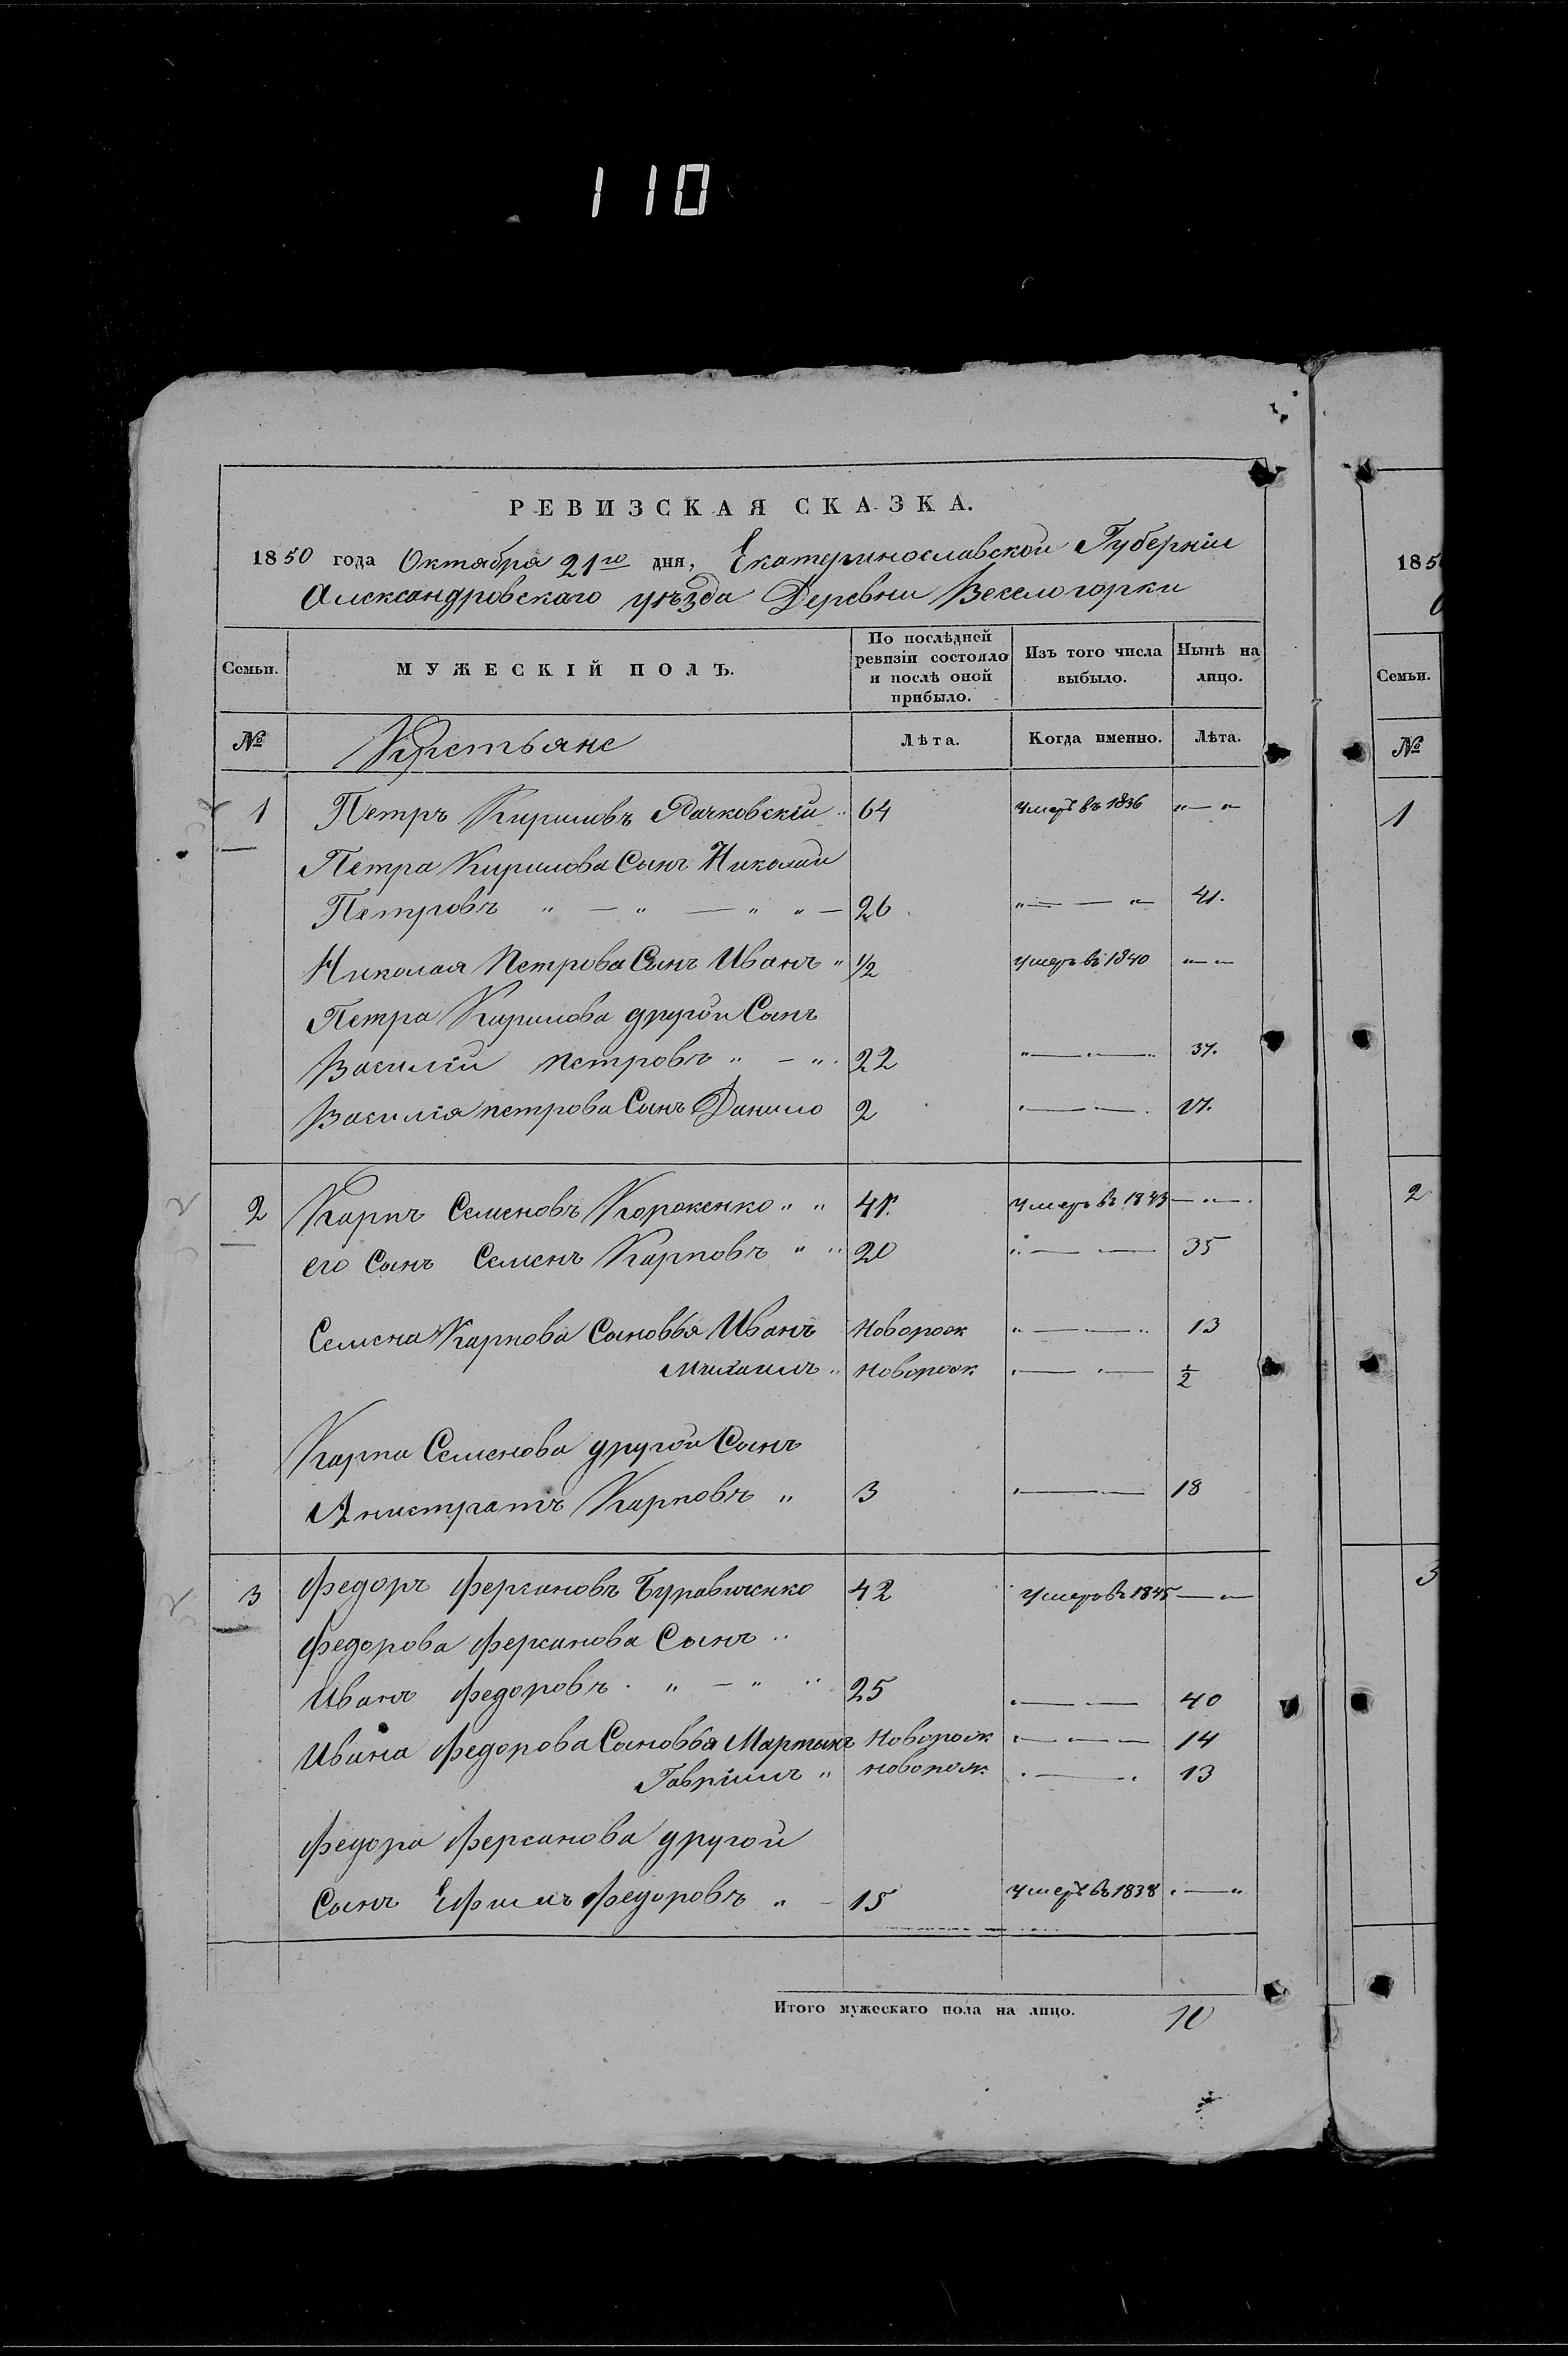 110
РЕВИЗСКАЯ СКАЗКА.
1850 года Октября 21го дня, Екатеринославской Губерніи
Александровскаго уѣзда Деревни Веселогорки
Семьи. МУЖЕСКІЙ ПОЛЪ. По послѣдней ревизіи состояло и послѣ оной прибыло. Изъ того числа выбыло. Нынѣ на лицо.
№ Крестьяне Лѣта. Когда именно. Лѣта.
1 Петръ Кириловъ Рачковскій " 64 умеръ въ 1836 "—"
Петра Кирилова Сынъ Николай
Петровъ " — " — " " — 26 "— — " 41.
Николая Петрова Сынъ Иванъ " 1/2 умеръ въ 1840 "—"
Петра Кирилова другой Сынъ
Василій петровъ " — " 22 "— — " 37.
Василія петрова Сынъ Данило 2 "— — " 17.
2 Карпъ Семеновъ " " 41. умеръ въ 1843 — " —
его Сынъ Семенъ Карповъ " " 20 "— — 35
Семена Карпова Сыновья Иванъ Новорож "— — " 13
Михаилъ " Новорож "— " — 1/2
Карпа Семенова другой Сынъ
Анистратъ Карповъ " 3 "— — 18
3 Федоръ Ферсановъ Буравиченко 42 умеръ въ 1845 — " —
Федорова Ферсанова Сынъ "
Иванъ Федоровъ " — " " 25 "— — 40
Ивана Федорова Сыновья Мартынъ Новорож "— — — 14
Гавріилъ " новорож "— " 13
Федора Ферсанова другой
Сынъ Ефимъ Федоровъ " — 15 умеръ въ 1838 "—"
Итого мужескаго пола на лицо. 10
185
Семьи.
№
1
2
3